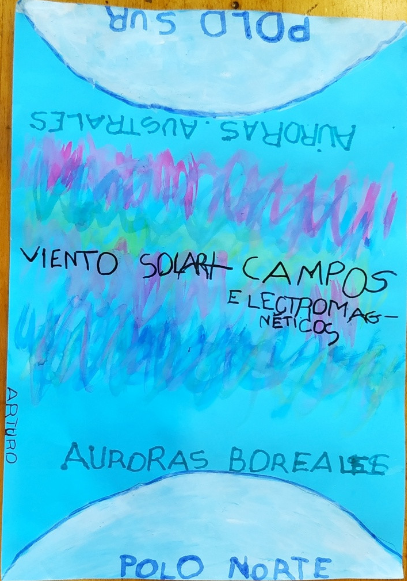 POLO SUR
AURORAS AUSTRALES
VIENTO SOLAR + CAMPOS
ELECTROMAG-
NÉTICOS
ARTURO
AURORAS BOREALES
POLO NORTE